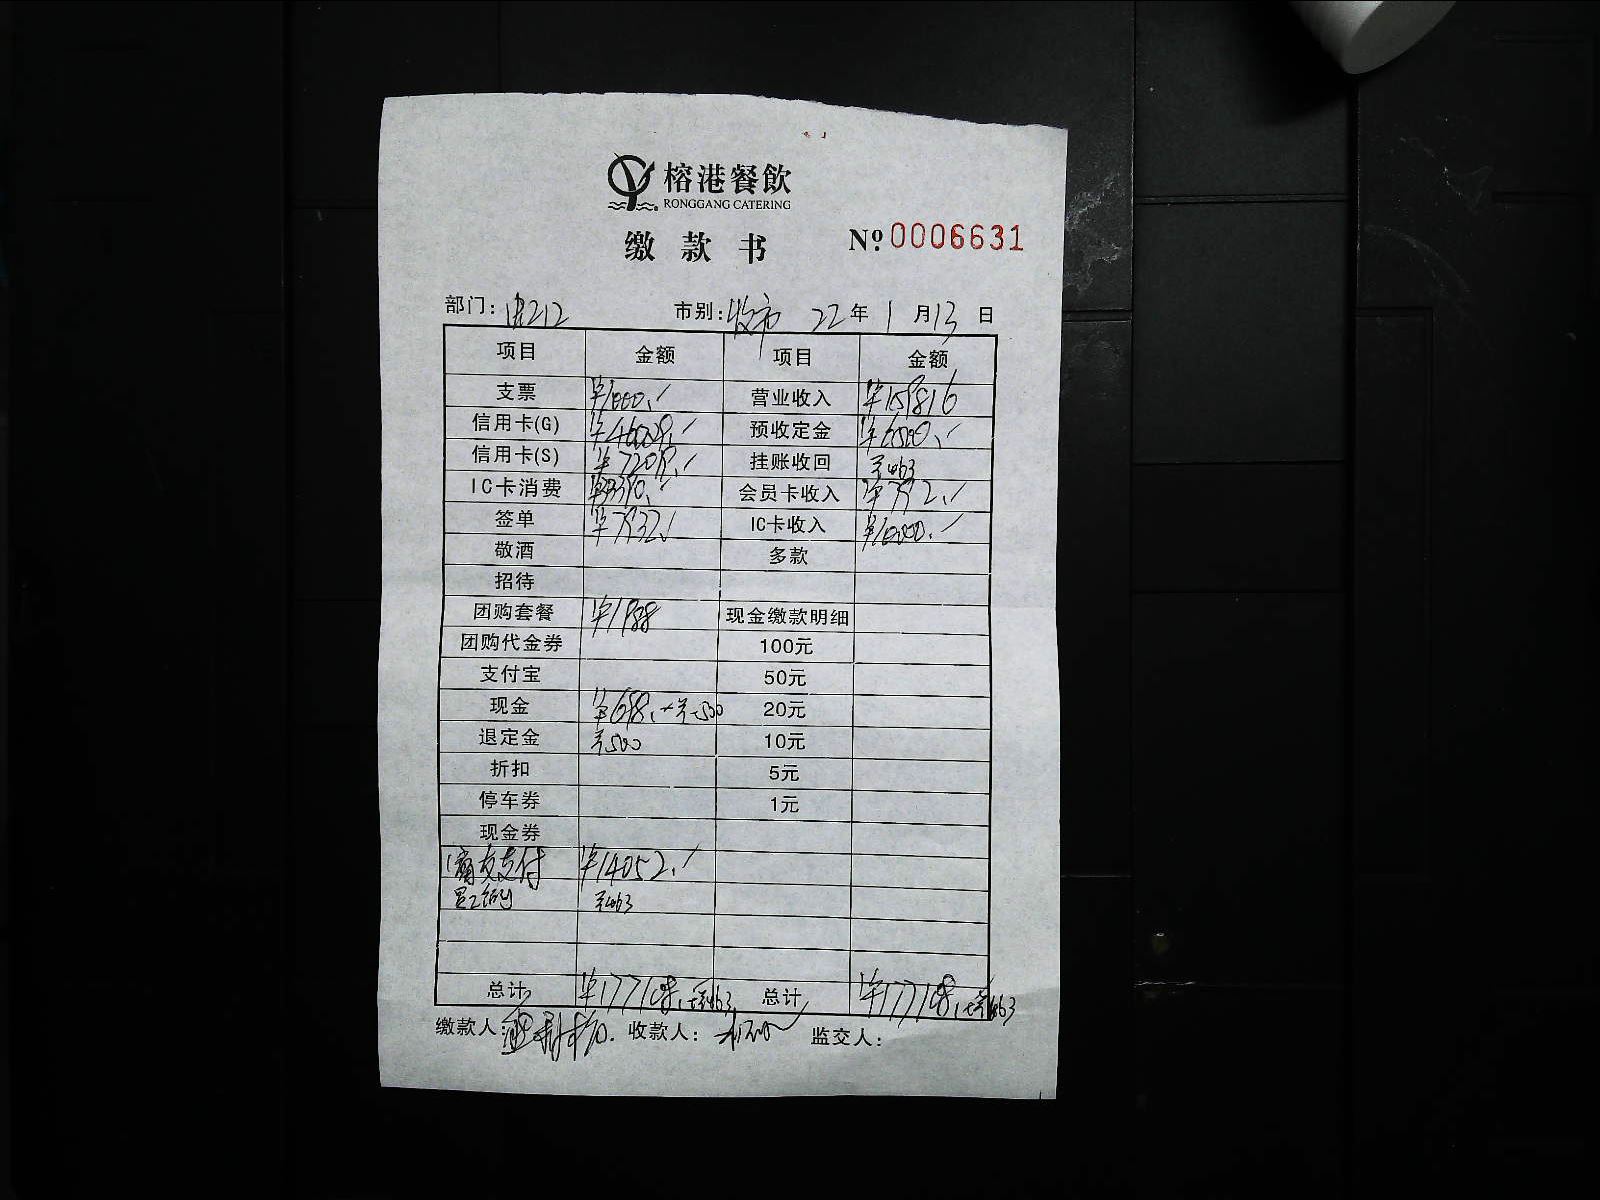 榕港餐飲
RONGGANG CATERING
缴款书 №0006631
部门: 市别:收市 22年1月13日
项目 金额 项目 金额
支票 ¥1000.- 营业收入 ¥159816
信用卡(G) 预收定金 ¥6500.-
信用卡(S) 挂账收回 ¥463
IC卡消费 会员卡收入 ¥792.-
签单 ¥7932.- IC卡收入 ¥10000.-
敬酒 多款
招待
团购套餐 ¥1988 现金缴款明细
团购代金券 100元
支付宝 50元
现金 ¥658.-+¥-500 20元
退定金 ¥500 10元
折扣 5元
停车券 1元
现金券
支付 ¥14052.-
员工 ¥463
总计 ¥177108.-+¥463 总计 ¥177108.-+¥463
缴款人: 收款人: 监交人: